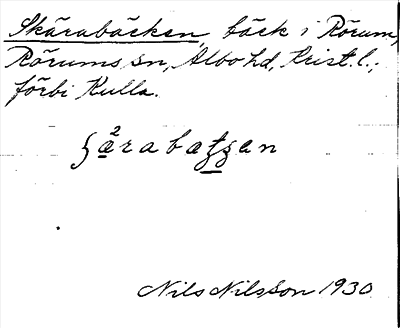 Skärabäcken, bäck i Rörum,
Rörums sn, Albo hd, Krist. l.;
förbi Kulla.
Nils Nilsson 1930